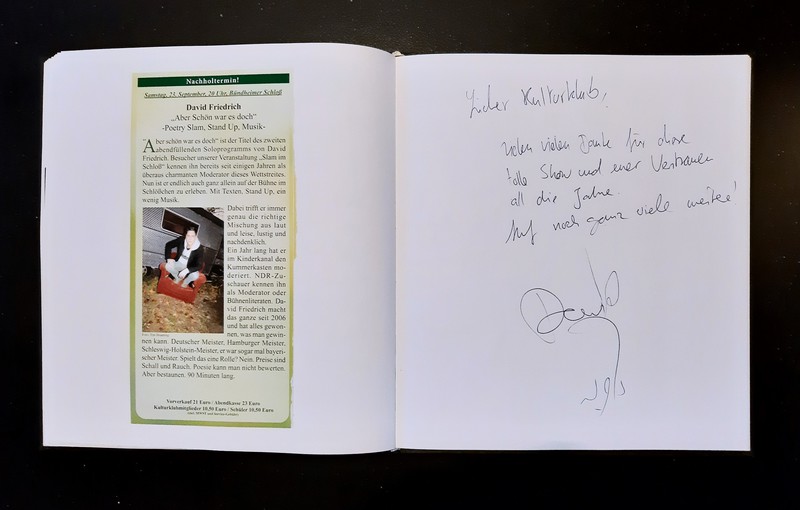 Nachholtermin!
Samstag, 23. September, 20 Uhr, Bündheimer Schloß
David Friedrich
„Aber Schön war es doch"
-Poetry Slam, Stand Up, Musik-
"Aber schön war es doch" ist der Titel des zweiten
abendfüllenden Soloprogramms von David
Friedrich. Besucher unserer Veranstaltung „Slam im
Schloß" kennen ihn bereits seit einigen Jahren als
überaus charmanten Moderator dieses Wettstreites.
Nun ist er endlich auch ganz allein auf der Bühne im
Schlößchen zu erleben. Mit Texten, Stand Up, ein
wenig Musik.
Dabei trifft er immer
genau die richtige
Mischung aus laut
und leise, lustig und
nachdenklich.
Ein Jahr lang hat er
im Kinderkanal den
Kummerkasten mo-
deriert. NDR-Zu-
schauer kennen ihn
als Moderator oder
Bühnenliteraten. Da-
vid Friedrich macht
das ganze seit 2006
und hat alles gewon-
nen, was man gewin-
nen kann. Deutscher Meister, Hamburger Meister,
Schleswig-Holstein-Meister, er war sogar mal bayeri-
scher Meister. Spielt das eine Rolle? Nein. Preise sind
Schall und Rauch. Poesie kann man nicht bewerten.
Aber bestaunen. 90 Minuten lang.
Vorverkauf 21 Euro / Abendkasse 23 Euro
Kulturklubmitglieder 10,50 Euro / Schüler 10,50 Euro
Lieber Kulturklub,
vielen vielen Danke für diese
tolle Show und euer Vertrauen
all die Jahre.
Auf noch ganz viele weitere!
David